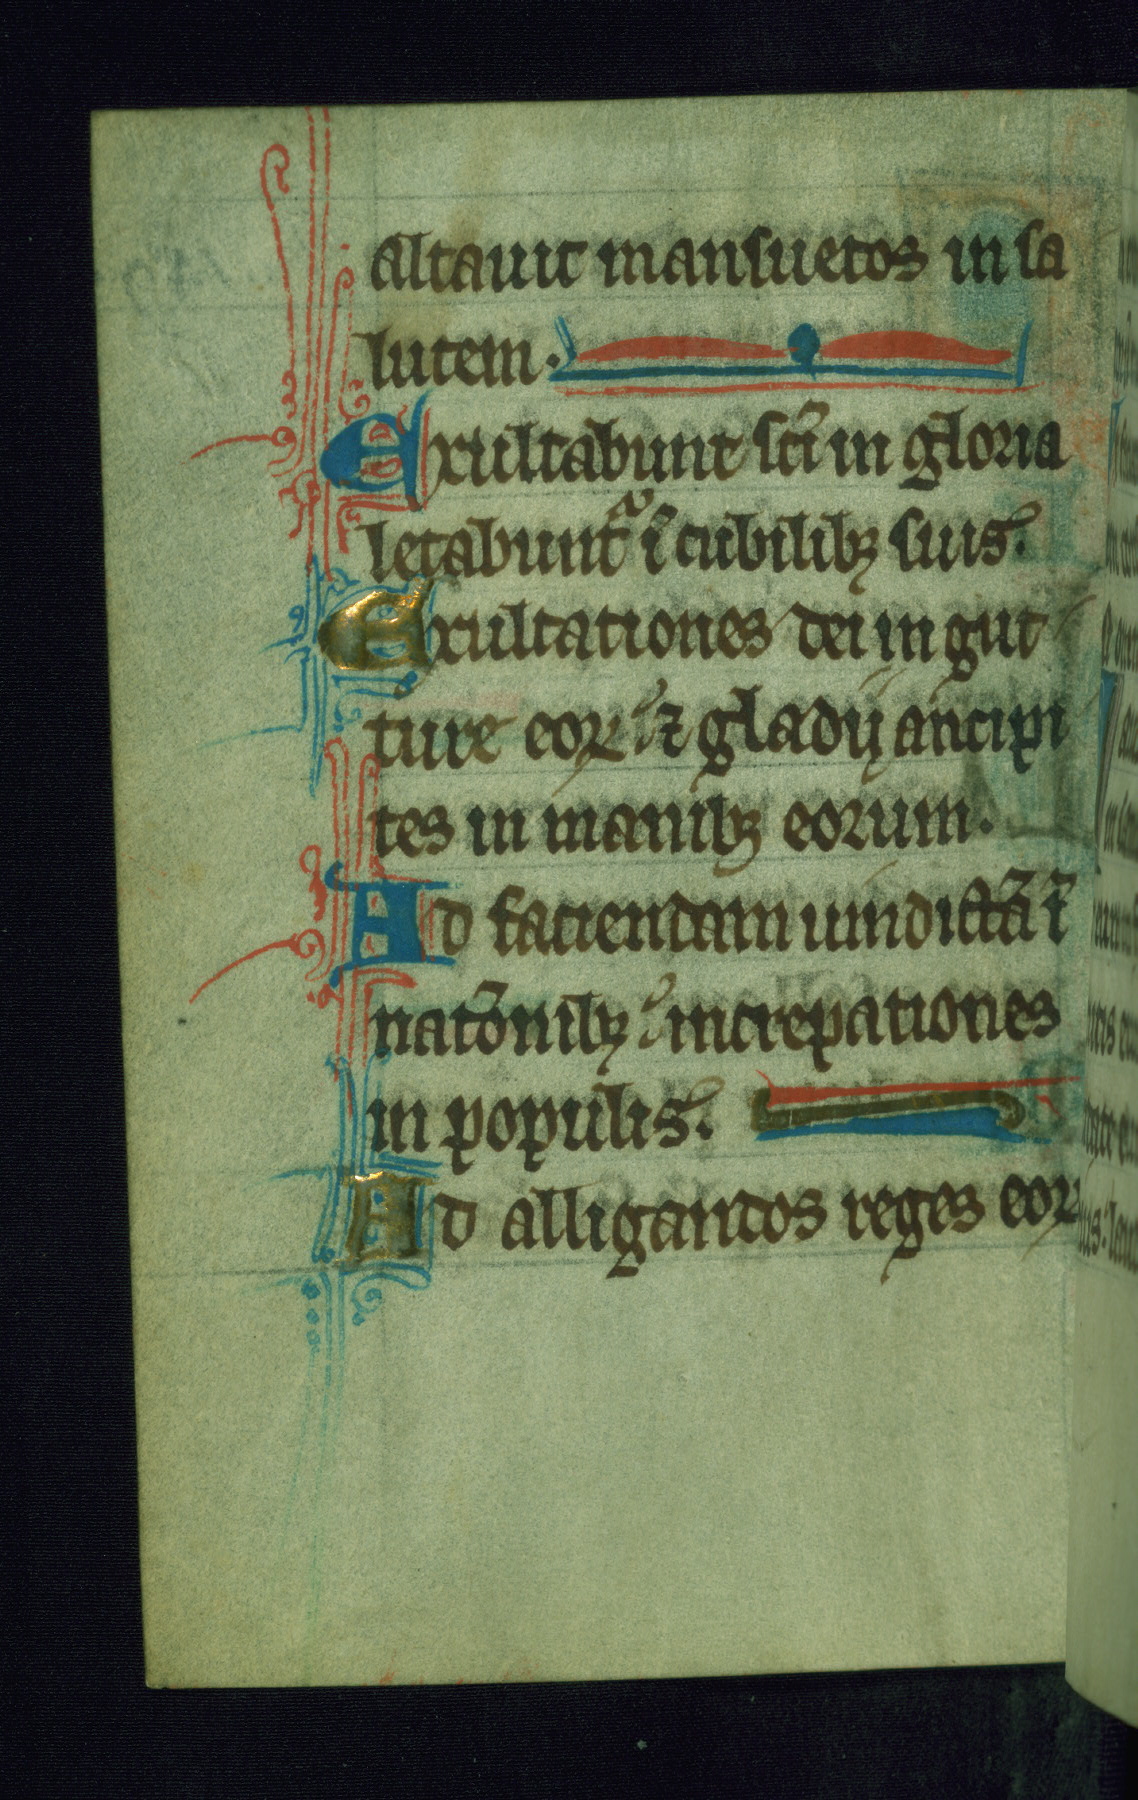 altauit mansuetos in sa
lutem.
Exultabunt sc̄i in gloria
letabuntᷓ ī cubilibꝫ suis.
Exultationes dei in gut
ture eoꝝ ⁊ gladij ancipi
tes in manibꝫ eorum.
Ad faciendam uindictā ī
natōnibꝫ increpationes
in populis.
Ad alligandos reges eoꝝ